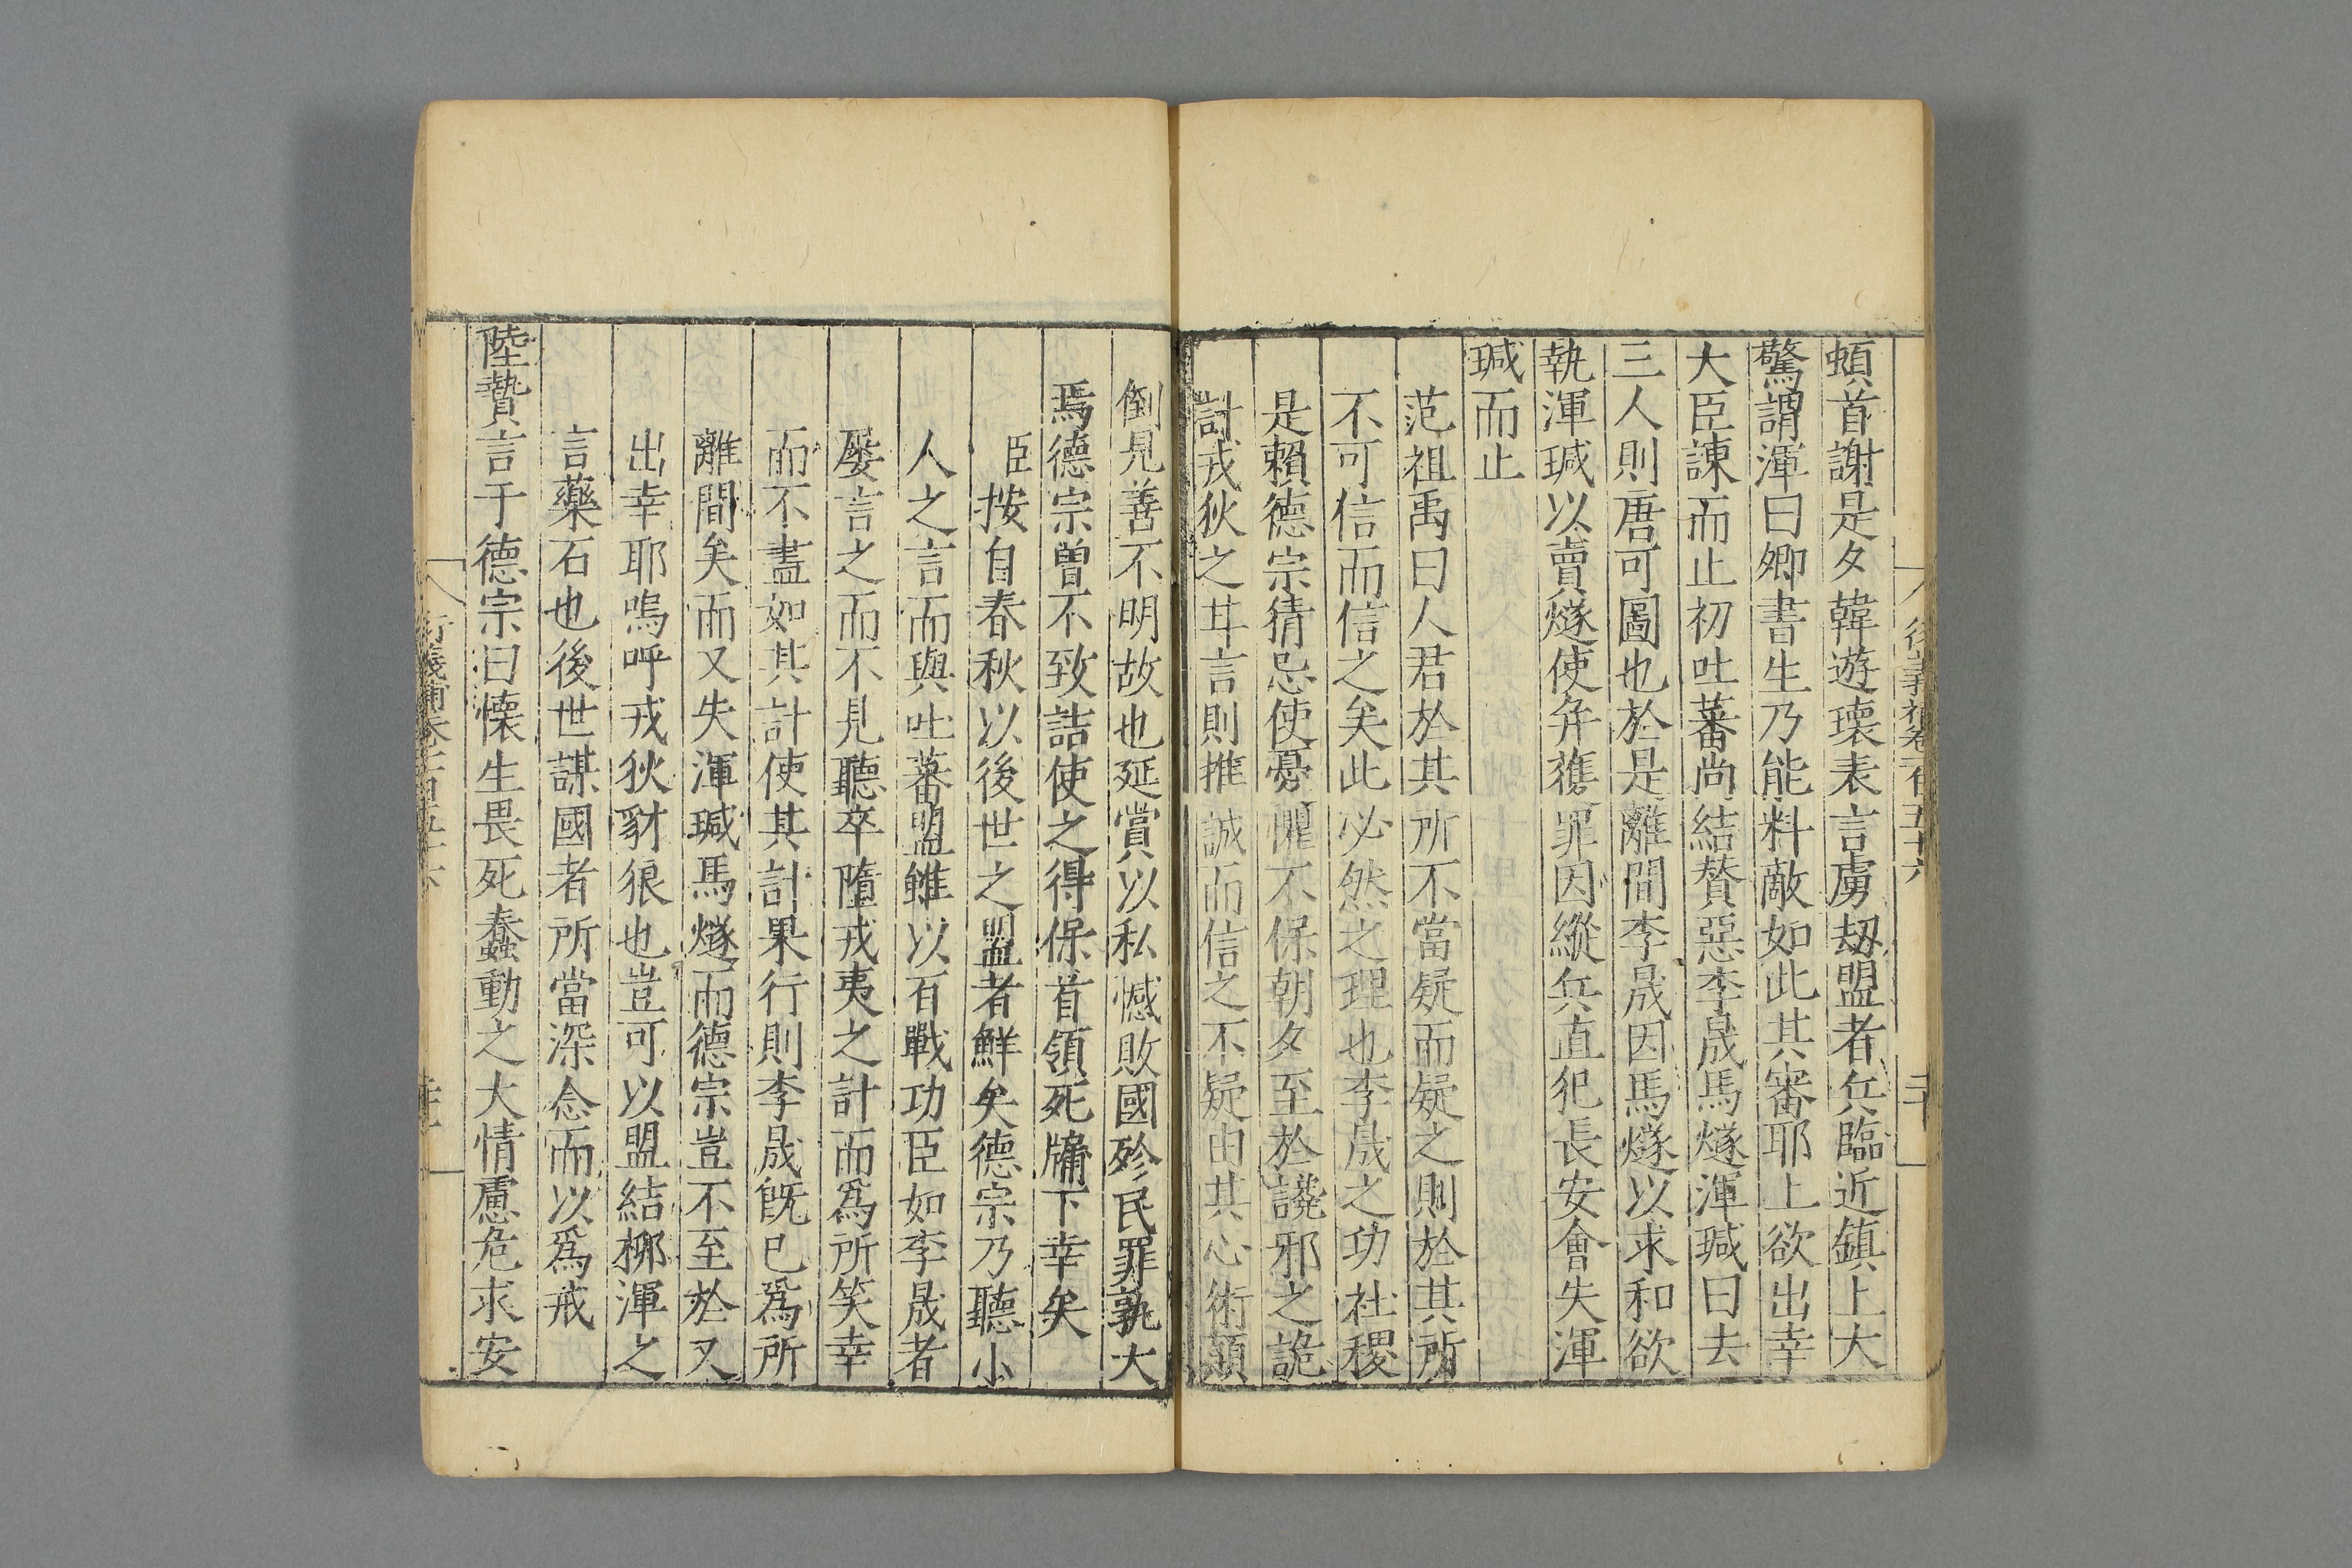 衍義補卷一百五十六
頓首謝是夕韓遊瓌表言虜劫盟者兵臨近鎮上大
驚謂渾曰卿書生乃能料敵如此其審耶上欲出幸
大臣諫而止初吐蕃尚結贊惡李晟馬燧渾瑊曰去
三人則唐可圖也於是離間李晟因馬燧以求和欲
執渾瑊以賣燧使并獲罪因縱兵直犯長安會失渾
瑊而止
范祖禹曰人君於其所不當疑而疑之則於其所
不可信而信之矣此必然之理也李晟之功社稷
是賴德宗猜忌使憂懼不保朝夕至於讒邪之詭
計戎狄之甘言則推誠而信之不疑由其心術顛
倒見善不明故也延賞以私憾敗國殄民罪孰大
焉德宗曾不致詰使之得保首領死牖下幸矣
臣按自春秋以後世之盟者鮮矣德宗乃聽小
人之言而與吐蕃盟雖以百戰功臣如李晟者
屢言之而不見聽卒墮戎夷之計而為所笑幸
而不盡如其計使其計果行則李晟旣已爲所
離間矣而又失渾瑊馬燧而德宗豈不至於又
出幸耶嗚呼戎狄豺狼也豈可以盟結柳渾之
言藥石也後世謀國者所當深念而以爲戒
陸贄言于德宗曰懷生畏死蠢動之大情慮危求安
衍義補卷一百五十六